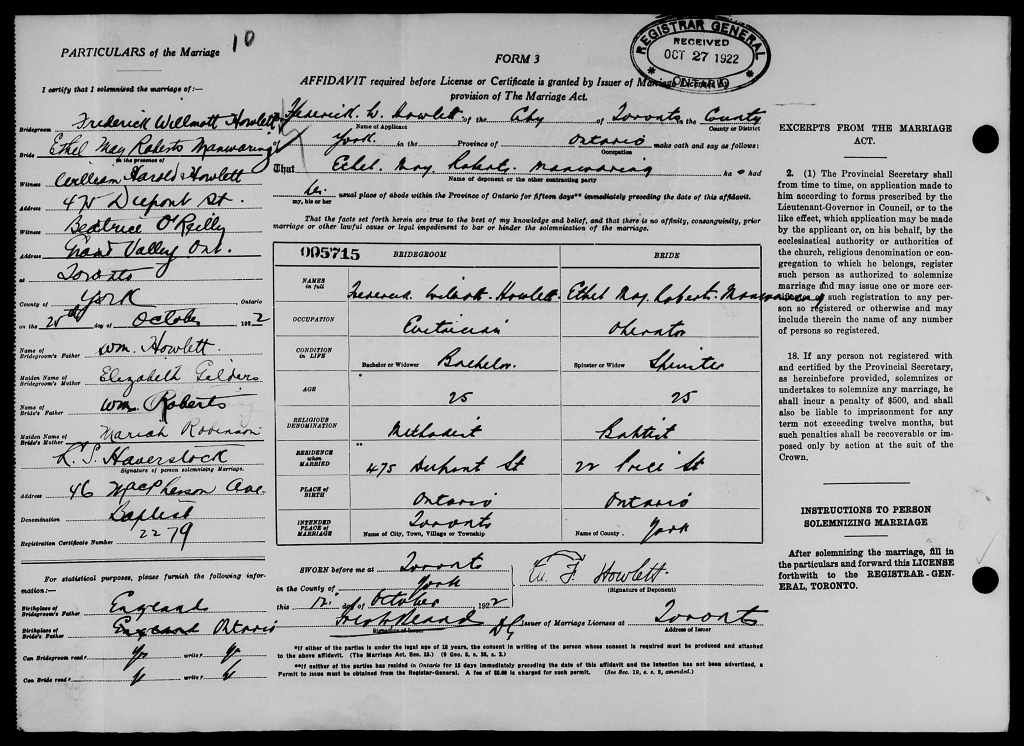 PARTICULARS of the Marriage
10
I certify that I solemnized the marriage of:—
Bridegroom Frederick Willmott Howlett
Bride Ethel May Roberts Manwaring
in the presence of
Witness William Harold Howlett
Address 475 Dupont St.
Witness Beatrice O'Reilly
Address Grand Valley Ont.
at Toronto
County of York, Ontario
on the day of October 1922
Name of Bridegroom's Father Wm. Howlett.
Maiden Name of Bridegroom's Mother Elizabeth Gilders
Name of Bride's Father Wm. Roberts
Maiden Name of Bride's Mother Mariah Robinson
Haverstock
Signature of person solemnizing Marriage.
Address 46 MacPherson Ave.
Denomination Baptist
Registration Certificate Number 2279
For statistical purposes, please furnish the following information:—
Birthplace of Bridegroom's Father England
Birthplace of Bride's Father England Ontario
Can Bridegroom read? write?
Can Bride read? write?
FORM 3
REGISTRAR GENERAL
RECEIVED
OCT 27 1922
ONTARIO
AFFIDAVIT required before License or Certificate is granted by Issuer of Marriage Licenses by
provision of The Marriage Act.
Frederick W. Howlett of the City of Toronto in the County
Name of Applicant County or District
of York. in the Province of Ontario make oath and say as follows:
Occupation
That Ethel May Roberts Manwaring ha had
Name of deponent or the other contracting party
his usual place of abode within the Province of Ontario for fifteen days** immediately preceding the date of this affidavit.
my, his or her
That the facts set forth herein are true to the best of my knowledge and belief, and that there is no affinity, consanguinity, prior
marriage or other lawful cause or legal impediment to bar or hinder the solemnization of the marriage.
005715 BRIDEGROOM BRIDE
NAMES in full Frederick Wilmott Howlett Ethel May Roberts Manwaring
OCCUPATION Electrician Operator
CONDITION in LIFE Bachelor or Widower Bachelor Spinster or Widow Spinster
AGE * 25 25
RELIGIOUS DENOMINATION Methodist Baptist
RESIDENCE when MARRIED ** 475 Dupont St 22 Price St
PLACE of BIRTH Ontario Ontario
INTENDED PLACE of MARRIAGE Toronto York
Name of City, Town, Village or Township Name of County
SWORN before me at Toronto
in the County of York
this 12 day of October 1922
Signature of Issuer
W F Howlett
(Signature of Deponent)
Issuer of Marriage Licenses at Toronto
Address of Issuer
*If either of the parties is under the legal age of 18 years, the consent in writing of the person whose consent is required must be produced and attached
to the above affidavit. (The Marriage Act, Sec. 15.) (9 Geo. 5, s. 35, s. 2.)
**If neither of the parties has resided in Ontario for 15 days immediately preceding the date of this affidavit and the intention has not been advertised, a
Permit to issue must be obtained from the Registrar-General. A fee of is charged for such permit. (See Sec. 19, s. s. 2, amended.)
EXCERPTS FROM THE MARRIAGE
ACT.
2. (1) The Provincial Secretary shall
from time to time, on application made to
him according to forms prescribed by the
Lieutenant-Governor in Council, or to the
like effect, which application may be made
by the applicant or, on his behalf, by the
ecclesiastical authority or authorities of
the church, religious denomination or con-
gregation to which he belongs, register
such person as authorized to solemnize
marriage and may issue one or more cer-
tificates of such registration to any per-
son so registered or otherwise and may
include therein the name of any number
of persons so registered.
18. If any person not registered with
and certified by the Provincial Secretary,
as hereinbefore provided, solemnizes or
undertakes to solemnize any marriage, he
shall incur a penalty of $500, and shall
also be liable to imprisonment for any
term not exceeding twelve months, but
such penalties shall be recoverable or im-
posed only by action at the suit of the
Crown.
INSTRUCTIONS TO PERSON
SOLEMNIZING MARRIAGE
After solemnizing the marriage, fill in
the particulars and forward this LICENSE
forthwith to the REGISTRAR-GEN-
ERAL, TORONTO.